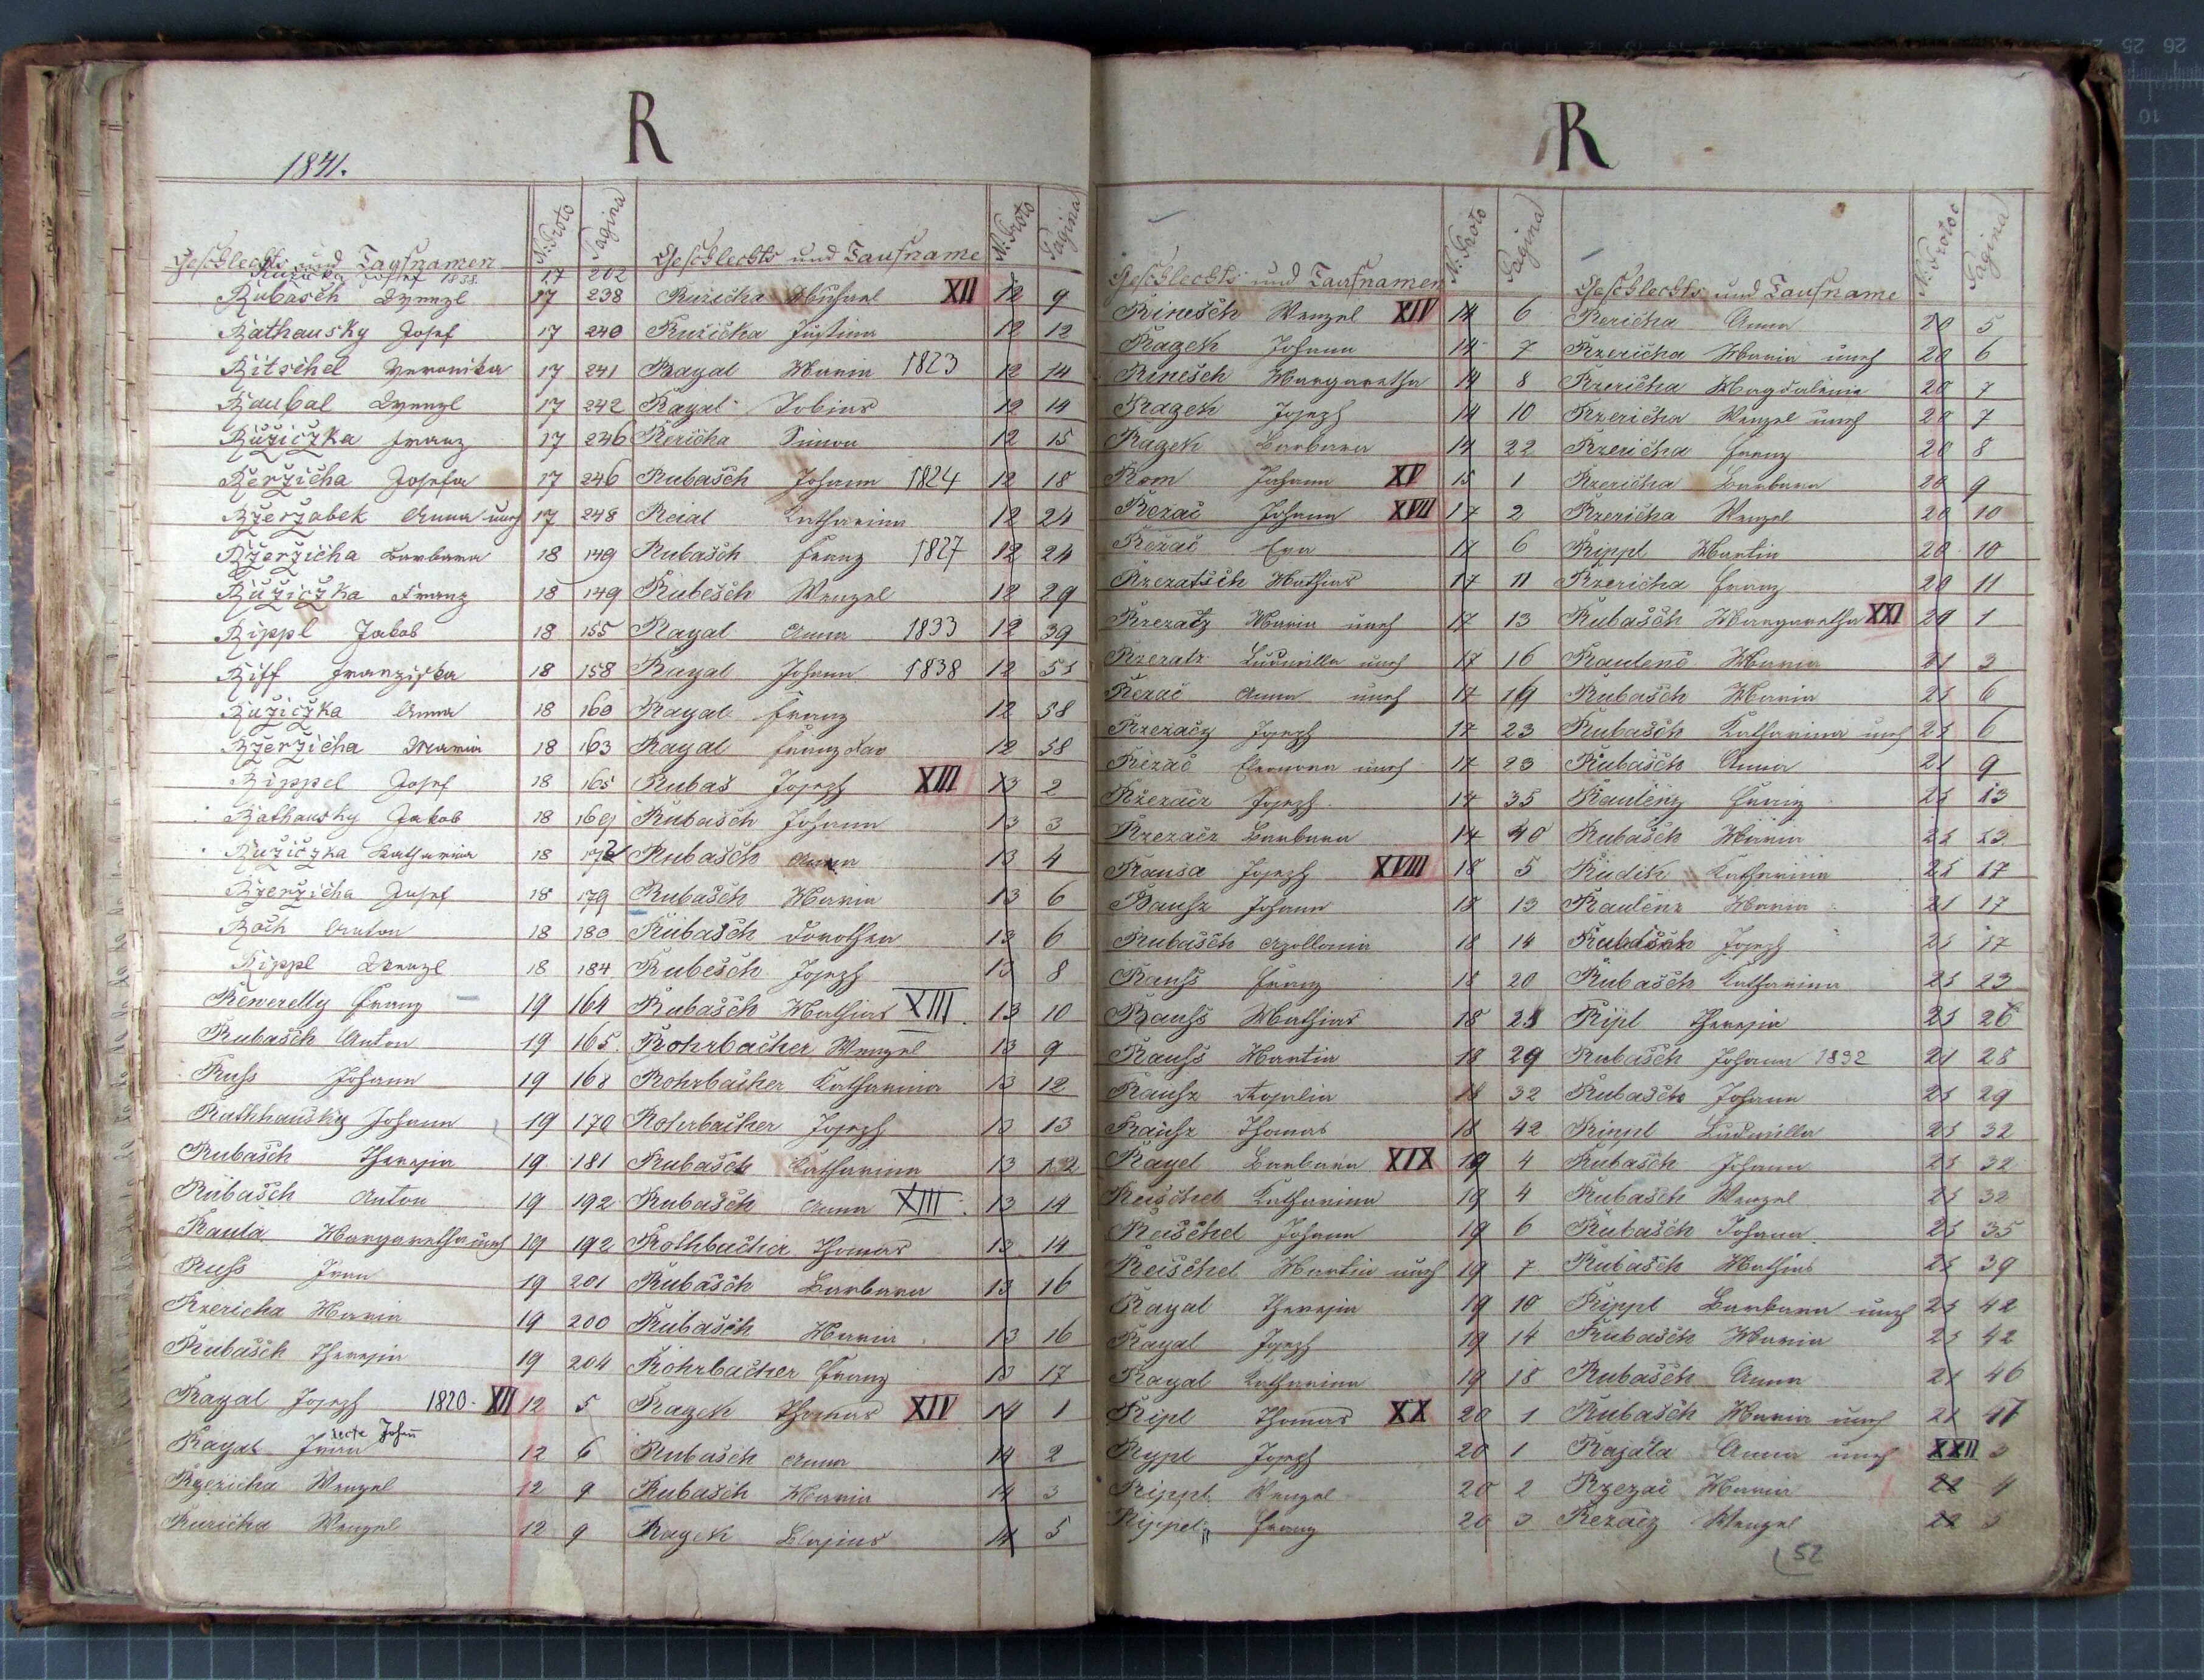 R
1841.
Geschlechts und Taufnamen
N: Proto
Pagina
Ružička Josef 1838. 17 202
Rubasch Wenzl 17 238
Rathausky Josef 17 240
Ritschel Veronika 17 241
Raubal Wenzl 17 242
Ružiczka Franz 17 246
Řerzicha Josefa 17 246
Rzeržabek Anna 17 248
Rzerzicha Barbara 18 149
Ružiczka Franz 18 149
Rippl Jakob 18 155
Riff Franziska 18 158
Ružiczka Anna 18 160
Rzerzicha Maria 18 163
Rippel Josef 18 165
Rathausky Jakob 18 169
Ružiczka Katharina 18
Rzerzicha Josef 18 179
Roch Anton 18 180
Rippl Wenzl 18 184
Rewerelly Franz 19 164
Rubasch Anton 19 165.
Russ Johann 19 168
Rathhausky Johann 19 170
Rubasch Theresia 19 181
Rubasch Anton 19 192
Rauta Margaretha 19 192
Russ Johann 19 201
Rzericha Maria 19 200
Rubasch Theresia 19 204
Rayal Joseph 1820. XII 12 5
Rayal recte Johann 12 6
Rzericha Wenzel 12 9
Ruricha Wenzel 12 9
Geschlechts und Taufname
N: Proto
Pagina
Ruzicka Michael XII 12 9
Ružicka Justina 12 12
Rayal Maria 1823 12 14
Rayal Tobias 12 14
Rericha Simon 12 15
Rubasch Johann 1824 12 18
Reial Katharina 12 24
Rubasch Franz 1827 12 24
Rubesch Wenzel 12 29
Rayal Anna 1833 12 39
Rayal Johann 1838 12 55
Rayal Franz 12 58
Rayal Franz Xav 12 58
Rubas Joseph XIII 13 2
Rubasch Johann 13 3
Rubasch Anna 13 4
Rubasch Maria 13 6
Rubasch Dorothea 13 6
Rubesch Joseph 13 8
Rubasch Mathias XIII. 13 10
Rohrbacher Wenzel 13 9
Rohrbacher Katharina 13 12
Rohrbacher Joseph 13 13
Rubasch Katharina 13
Rubasch Anna XIII. 13 14
Rothbacher Thomas 13 14
Rubasch Barbara 13 16
Rubasch Maria 13 16
Rohrbacher Franz 13 17
Razek Thomas XIV 14 1
Rubasch Anna 14 2
Rubasch Maria 14 3
Razek Blasius 14 5
R
Geschlechts und Taufnamen
N: Proto
Pagina
Rinesch Wenzel XIV 14 6
Razek Johann 14 7
Rinesch Margaretha 14 8
Razek Joseph 14 10
Razek Barbara 14 22
Rom Johann XV 15 1
Rezač Johann XVII 17 2
Režač Eva 17 6
Rzezatsch Mathias 17 11
Rzezatz Maria 17 13
Rzezatz Ludmilla 17 16
Rezač Anna 17 19
Rzezacz Joseph 17 23
Rezač Eleonora 17 23
Rzezacz Joseph 17 35
Rzezacz Barbara 17 40
Rausa Joseph XVIII 18 5
Rausz Johann 18 13
Rubasch Apollonia 18 14
Rauss Franz 18 20
Rauss Mathias 18
Rauss Martin 18 29
Rausz Rosalia 18 32
Rausz Thomas 18 42
Rayel Barbara XIX 19 4
Reischel Katharina 19 4
Reischel Johann 19 6
Reischel Martin 19 7
Rayal Theresia 19 10
Rayal Joseph 19 14
Rayal Katharina 19 18
Ripl Thomas XX 20 1
Rypl Joseph 20 1
Rippl Wenzel 20 2
Rippel Franz 20 3
Geschlechts und Taufname
N: Protoc
Pagina
Rericha Anna 20 5
Rzericha Maria 20 6
Rzericha Magdalena 20 7
Rzericha Wenzel 20 7
Rzericha Franz 20 8
Rzericha Barbara 20 9
Rzericha Wenzel 20 10
Rippl Martin 20 10
Rzericha Franz 20 11
Rubasch Margaretha XXI 21 1
Rautenc Maria 21 3
Rubasch Maria 21 6
Rubasch Katharina 21 6
Rubasch Anna 21 9
Rautenz Franz 21 13
Rubasch Maria 21 13
Rudik Katharina 21 17
Rautenz Maria 21 17
Rubasch Joseph 21 17
Rubasch Katharina 21 23
Ripl Theresia 21 26
Rubasch Johann 1832 21 28
Rubasch Johann 21 29
Rippl Ludmilla 21 32
Rubasch Johann 21 32
Rubasch Wenzel 21 32
Rubasch Johann 21 35
Rubasch Mathias 21 39
Rippl Barbara 21 42
Rubasch Maria 21 42
Rubasch Anna 21 46
Rubasch Maria 21 47
Rajata Anna XXII 3
Rzezač Maria 22 4
Rezacz Wenzel 22 5
52